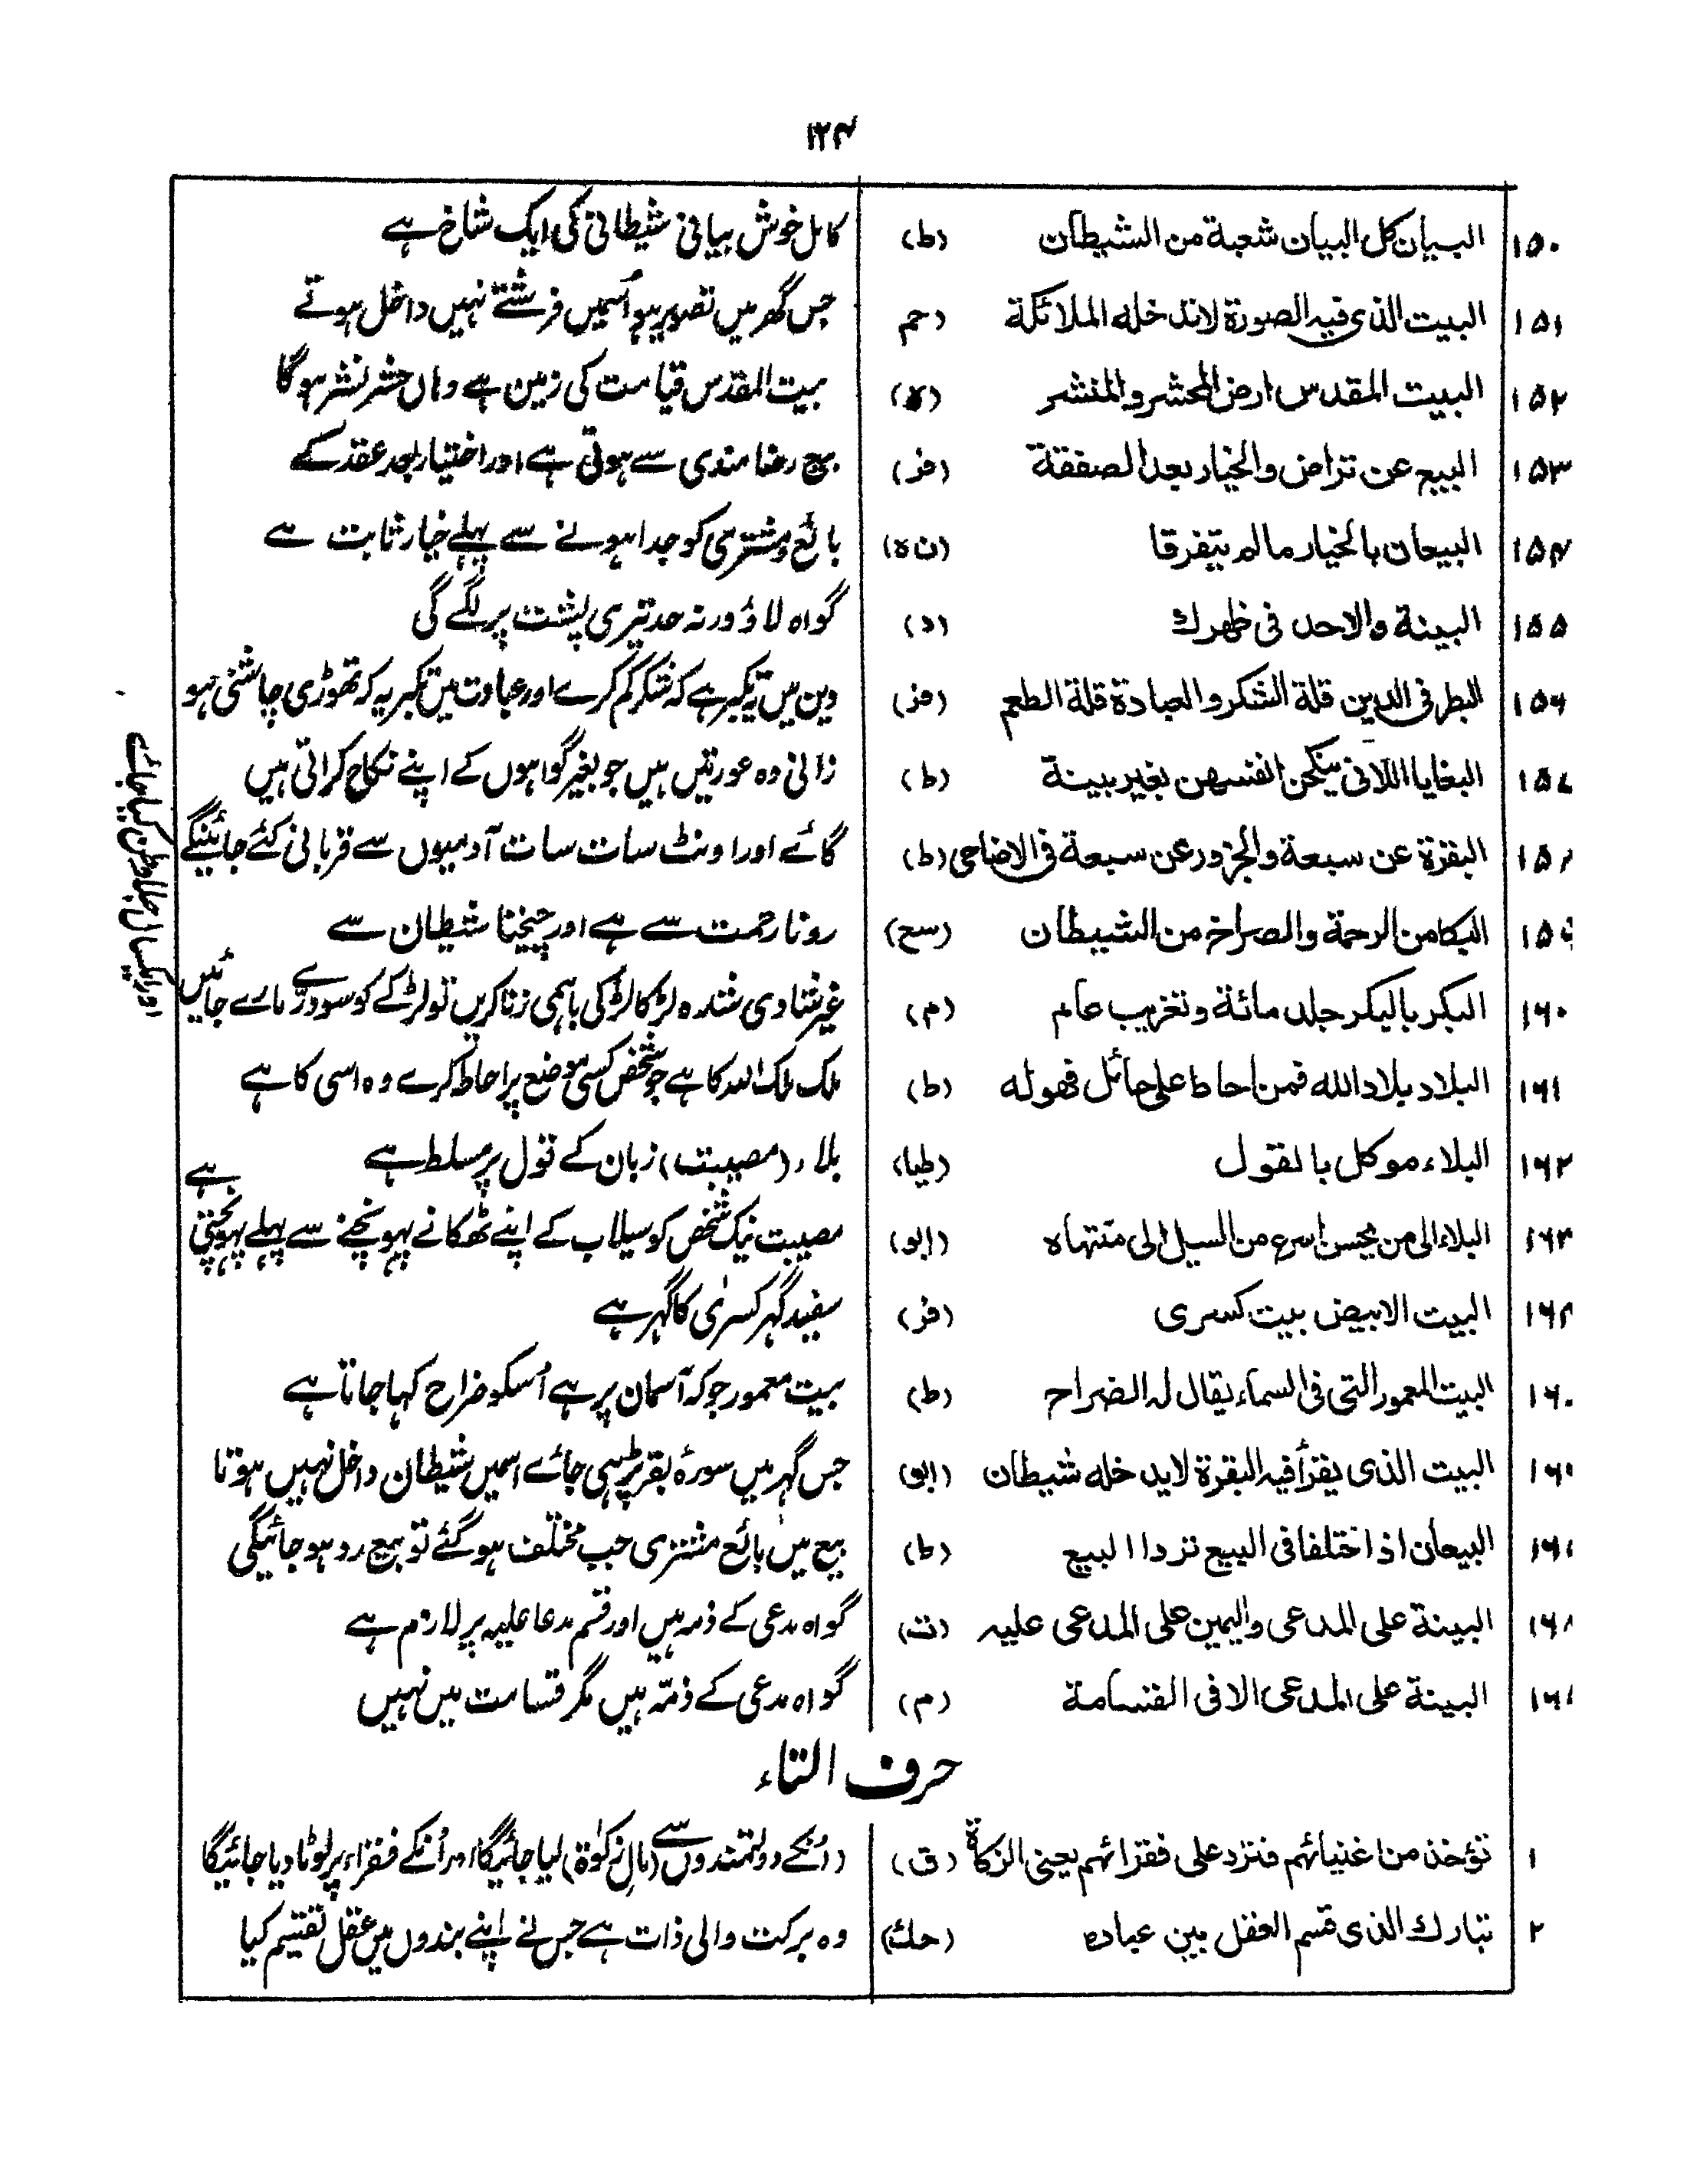 ۱۲۴
۱۵۰ البیان کل البیان شعبة من الشیطان (ط) کامل خوش بیانی شیطانی کی ایک شاخ ہے
۱۵۱ البیت الذی فیہ الصورة لاتدخله الملائکة (حم جس گھر میں تصویر ہو اُسمیں فرشتے نہیں داخل ہوتے
۱۵۲ البیت المقدس ارض المحشر والمنشر (ہ) بیت المقدس قیامت کی زمین ہے وہاں حشر نشر ہوگا
۱۵۳ البیع عن تراض والخیار بعد الصفقة (فر) بیع رضا مندی سے ہوتی ہے اور اختیار بعد عقد کے
۱۵۴ البیعان بالخیار مالم یتفرقا (ن ہ) بائع و مشتری کو جدا ہونے سے پہلے خیار ثابت ہے
۱۵۵ البینة والاحد فی ظهرك (د) گواہ لاؤ ورنہ حد تیری پشت پر لگے گی
۱۵۶ البطر فی الدین قلة الشکر والعبادة قلة الطعم (فر) دین میں تکبر یہ ہے کہ شکر کم کرے اور عبادت میں تکبر یہ کہ تھوڑی چاشنی ہو
۱۵۷ البغایا اللآتی ینکحن انفسهن بغیر بینة (ط) زانی وہ عورتیں ہیں جو بغیر گواہوں کے اپنے نکاح کراتی ہیں
۱۵۸ البقرة عن سبعة والجزور عن سبعة فی الاضاحی (ط) گائے اور اونٹ سات سات آدمیوں سے قربانی کئے جائینگے
۱۵۹ البکا من الرحمة والصراخ من الشیطان (سح) رونا رحمت سے ہے اور چیخنا شیطان سے
۱۶۰ البکر بالبکر جلد مائة وتغریب عام (م) غیر شادی شدہ لڑکا لڑکی باہمی زنا کریں تو لڑکے کو سو دُرّے مارے جائیں
اور ایک سال جلا وطن کیا جائے
۱۶۱ البلاد بلاد الله فمن احاط علی حائل فهو له (ط) ملک ملک اللہ کا ہے جو شخص کسی موضع پر احاطہ کرے وہ اسی کا ہے
۱۶۲ البلاء موکل بالقول (طیا) بلاء (مصیبت) زبان کے قول پر مسلط ہے
۱۶۳ البلاء الی من یحسن اسرع من السیل الی منتهاه (ابو) مصیبت نیک شخص کو سیلاب کے اپنے ٹھکانے پہونچنے سے پہلے پہونچتی ہے
۱۶۴ البیت الابیض بیت کسری (فر) سفید گہر کسریٰ کا گہر ہے
۱۶ البیت المعمور التی فی السماء یقال له الضراح (ط) بیت معمور جو کہ آسمان پر ہے اُسکو ضراح کہا جاتا ہے
۱۶ البیت الذی یقرأ فیه البقرة لاید خله شیطان (ابو) جس گہر میں سورۂ بقر پڑہی جائے اسمیں شیطان داخل نہیں ہوتا
۱۶ البیعان اذا ختلفا فی البیع تردا البیع (ط) بیع میں بائع مشتری جب مختلف ہو گئے تو بیع رد ہو جائیگی
۱۶۸ البینة علی المدعی والیمین علی المدعی علیہ (ت) گواہ مدعی کے ذمہ ہیں اور قسم مدعا علیہ پر لازم ہے
۱۶ البینة علی المدعی الا فی القسامة (م) گواہ مدعی کے ذمّہ ہیں مگر قسامت میں نہیں
حرف التاء
۱ تؤخذ من اغنیائهم فترد علی فقرائهم یعنی الزکاة (ق) (اُنکے دولتمندوں سے (مالِ زکوٰة) لیا جائیگا اور اُنکے فقراء پر لوٹا دیا جائیگا
۲ تبارك الذی قسم العقل بین عباده (حك) وہ برکت والی ذات ہے جس نے اپنے بندوں میں عقل تقسیم کیا